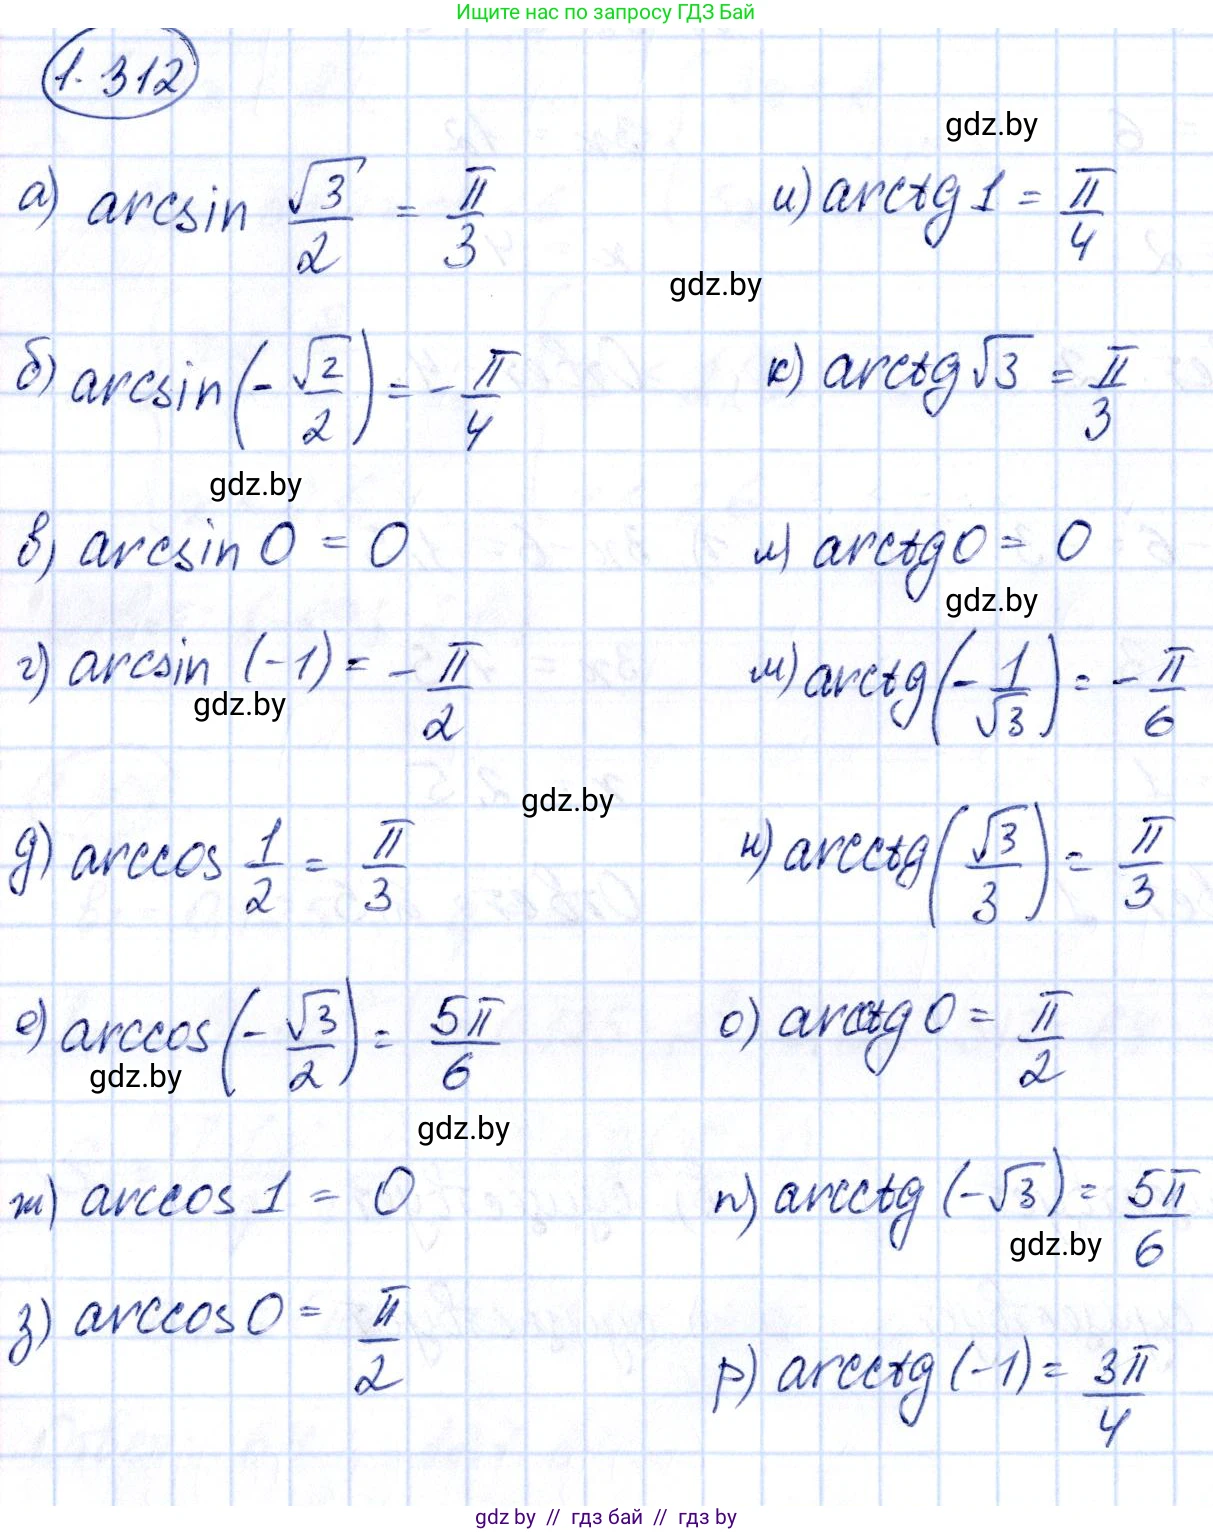 Ищите нас по запросу ГДЗ Бай
1.312
gdz.by
а) arcsin √3/2 = π/3
и) arctg 1 = π/4
gdz.by
б) arcsin(-√2/2) = -π/4
к) arctg √3 = π/3
gdz.by
в) arcsin 0 = 0
л) arctg 0 = 0
gdz.by
г) arcsin (-1) = -π/2
м) arctg(-1/√3) = -π/6
gdz.by
gdz.by
д) arccos 1/2 = π/3
н) arcctg(√3/3) = π/3
е) arccos(-√3/2) = 5π/6
о) arcctg 0 = π/2
gdz.by
gdz.by
ж) arccos 1 = 0
п) arcctg (-√3) = 5π/6
gdz.by
з) arccos 0 = π/2
р) arcctg (-1) = 3π/4
gdz by // гдз бай // гдз by